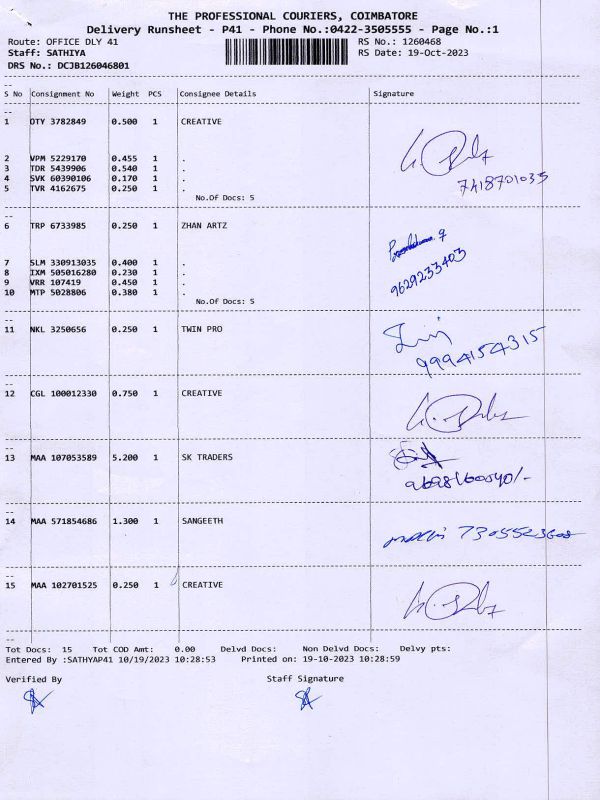 THE PROFESSIONAL COURIERS, COIMBATORE
Delivery Runsheet - P41 - Phone No.:0422-3505555 - Page No.:1
Route: OFFICE DLY 41 RS No.: 1260468
Staff: SATHIYA RS Date: 19-Oct-2023
DRS No.: DCJB126046801
S No Consignment No Weight PCS Consignee Details Signature
1 OTY 3782849 0.500 1 CREATIVE
2 VPM 5229170 0.455 1 .
3 TDR 5439906 0.540 1 .
4 SVK 60390106 0.170 1 .
5 TVR 4162675 0.250 1 .
7418701035
No.Of Docs: 5
6 TRP 6733985 0.250 1 ZHAN ARTZ
7 SLM 330913035 0.400 1 .
8 IXM 505016280 0.230 1 .
9629233403
9 VRR 107419 0.450 1 .
10 MTP 5028806 0.380 1 .
No.Of Docs: 5
11 NKL 3250656 0.250 1 TWIN PRO
9994154315
12 CGL 100012330 0.750 1 CREATIVE
13 MAA 107053589 5.200 1 SK TRADERS
14 MAA 571854686 1.300 1 SANGEETH
15 MAA 102701525 0.250 1 CREATIVE
Tot Docs: 15 Tot COD Amt: 0.00 Delvd Docs: Non Delvd Docs: Delvy pts:
Entered By :SATHYAP41 10/19/2023 10:28:53 Printed on: 19-10-2023 10:28:59
Verified By Staff Signature